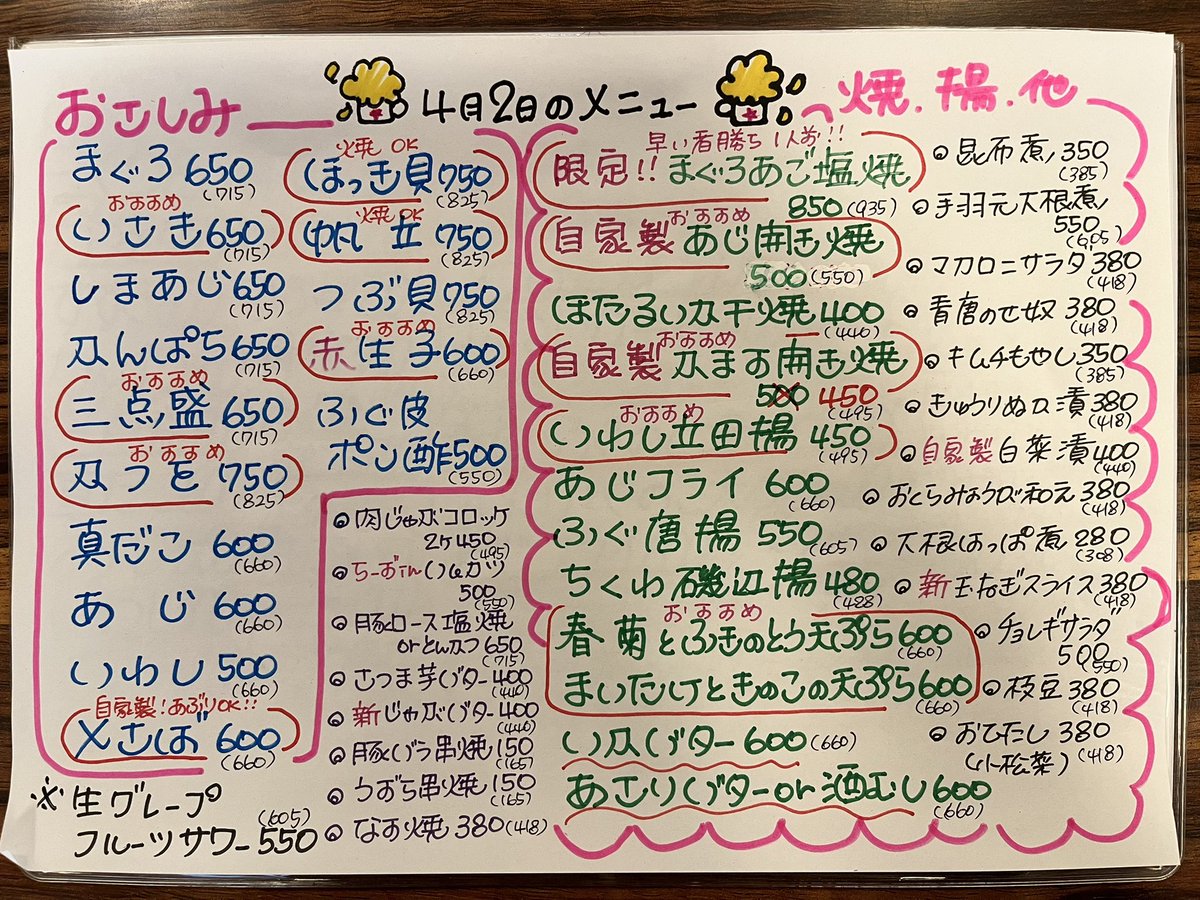 4月2日のメニュー
おさしみ
まぐろ 650
(715)
おすすめ
いさき 650
(715)
しまあじ 650
(715)
カんぱち 650
(715)
おすすめ
三点盛 650
(715)
おすすめ
カつを 750
(825)
真だこ 600
(660)
あじ 600
(660)
いわし 500
(660)
自家製!あぶりOK!!
〆さば 600
(660)
焼OK
ほっき貝 750
(825)
焼OK
帆立 750
(825)
つぶ貝 750
(825)
おすすめ
赤生子 600
(660)
ふぐ皮
ポン酢 500
(550)
◎肉じゃがコロッケ
2ケ 450
(495)
◎ちーずinハムカツ
500
(550)
◎豚ロース塩焼
orとんカつ 650
(715)
◎さつま芋バター 400
(440)
◎新じゃがバター 400
(440)
◎豚バラ串焼 150
(165)
◎うずら串焼 150
(165)
◎なす焼 380 (418)
※生グレープ
フルーツサワー 550
(605)
焼.揚.他
早い者勝ち 1人前!!
限定!!まぐろあご塩焼
850 (935)
おすすめ
自家製あじ開き焼
500 (550)
ほたるいカ干焼 400
(440)
おすすめ
自家製カます開き焼
500 450
(495)
おすすめ
いわし立田揚 450
(495)
あじフライ 600
(660)
ふぐ唐揚 550
(605)
ちくわ磯辺揚 480
(488)
おすすめ
春菊とふきのとう天ぷら 600
(660)
まいたけときのこの天ぷら 600
(660)
いカバター 600 (660)
あさりバターor酒むし 600
(660)
◎昆布煮 350
(385)
◎手羽元大根煮
550
(605)
◎マカロニサラダ 380
(418)
◎青唐のせ奴 380
(418)
◎キムチもやし 350
(385)
◎きゅうりぬカ漬 380
(418)
◎自家製白菜漬 400
(440)
◎おくらみょうが和え 380
(418)
◎大根はっぱ煮 280
(308)
◎新玉ねぎスライス 380
(418)
◎チョレギサラダ
500
(550)
◎枝豆 380
(418)
◎おひたし 380
(小松菜) (418)